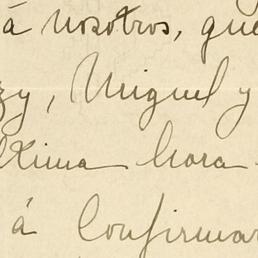 á nosotros, que
zy, Miguel y
ltima hora
á Confirmar